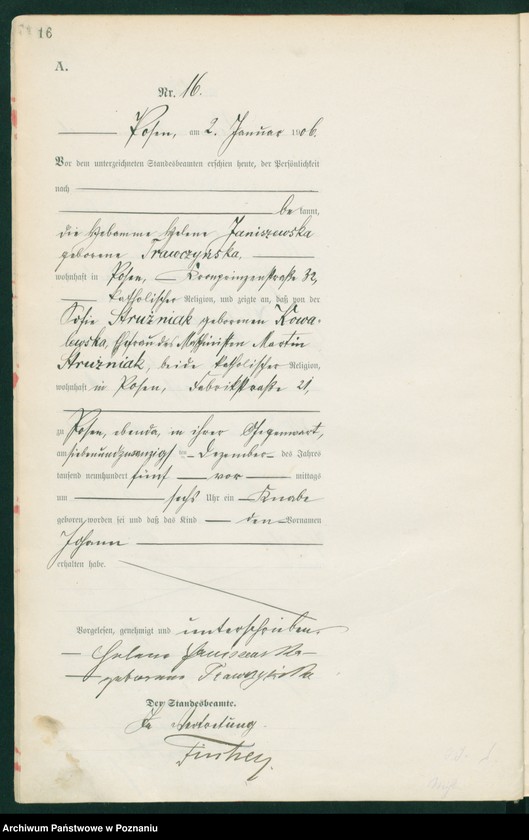 16
A.
Nr. 16.
Posen, am 2. Januar 1906.
Vor dem unterzeichneten Standesbeamten erschien heute, der Persönlichkeit
nach
bekannt,
die Hebamme Helene Janiszewska
geborene Trawczyńska,
wohnhaft in Posen, Kronprinzenstraße 32,
katholischer Religion, und zeigte an, daß von der
Sofie Strużniak geborenen Kowa-
lewska, Ehefrau des Maschinisten Martin
Strużniak, beide katholischer Religion,
wohnhaft in Posen, Fabrikstraße 21,
zu Posen, ebenda, in ihrer Gegenwart,
am siebenundzwanzigsten Dezember des Jahres
tausend neunhundert fünf vor mittags
um sechs Uhr ein Knabe
geboren worden sei und daß das Kind den Vornamen
Johann
erhalten habe.
Vorgelesen, genehmigt und unterschrieben.
Helene Janiszewska
geborene Trawczyńska
Der Standesbeamte.
In Vertretung.
Archiwum Państwowe w Poznaniu